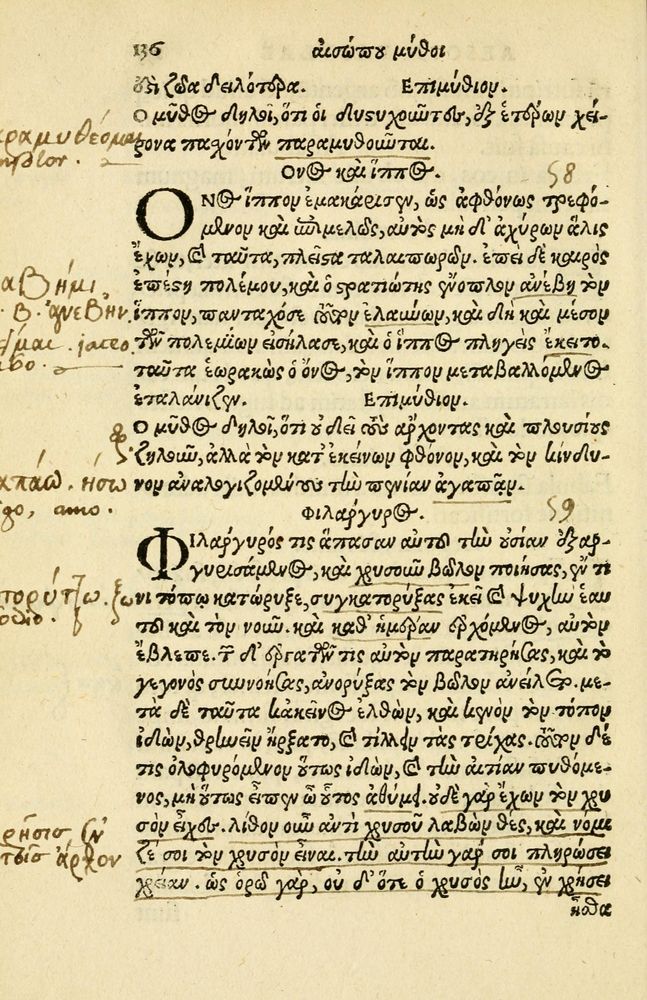 136 αἰσώπου μῦθοι
ἐςὶ ζῶα δειλότερα. Επιμύθιον.
Ο μῦθος δηλοῖ, ὅτι οἱ δυςυχοῦντες, ἐξ ἑτέρων χεί-
ρονα παχόντων παραμυθοῦνται.
Ονος καὶ ἵππος. 58
ΟΝος ἵππον ἐμακάριζεν, ὡς ἀφθόνως τρεφό-
μενον καὶ ἐπιμελῶς, αὐτὸς μὴ δ' ἀχύρων ἅλις
ἔχων, καὶ ταῦτα, πλεῖςα ταλαιπωρῶν. ἐπεὶ δὲ καιρὸς
ἐπέςη πολέμου, καὶ ὁ ςρατιώτης ἔνοπλον ἀνέβη τὸν
ἵππον, πανταχόσε τοῦτον ἐλαύνων, καὶ δὴ καὶ μέσον
τῶν πολεμίων εἰσήλασε, καὶ ὁ ἵππος πληγεὶς ἔκειτο.
ταῦτα ἑωρακὼς ὁ ὄνος, τὸν ἵππον μεταβαλλόμενος
ἐταλάνιζεν. Επιμύθιον.
Ο μῦθος δηλοῖ, ὅτι οὐ δεῖ τοὺς ἄρχοντας καὶ πλουσίους
ζηλοῦν, ἀλλὰ τὸν κατ' ἐκείνων φθόνον, καὶ τὸν κίνδυ-
νον ἀναλογιζομένους τὴν πενίαν ἀγαπᾶν.
Φιλάργυρος. 59
ΦΙλάργυρός τις ἅπασαν αὐτοῦ τὴν οὐσίαν ἐξαρ-
γυρισάμενος, καὶ χρυσοῦν βῶλον ποιήσας, ἔν τι
νι τόπῳ κατώρυξε, συγκατορύξας ἐκεῖ καὶ ψυχὴν ἑαυ
τοῦ καὶ τὸν νοῦν. καὶ καθ' ἡμέραν ἐρχόμενος, αὐτὸν
ἔβλεπε. τῶν δ' ἐργατῶν τις αὐτὸν παρατηρήσας, καὶ τὸ
γεγονὸς συννοήσας, ἀνορύξας τὸν βῶλον ἀνείλετο. με-
τὰ δὲ ταῦτα κἀκεῖνος ἐλθὼν, καὶ κενὸν τὸν τόπον
ἰδὼν, θρηνεῖν ἤρξατο, καὶ τίλλειν τὰς τρίχας. τοῦτον δέ
τις ὀλοφυρόμενον οὕτως ἰδὼν, καὶ τὴν αἰτίαν πυθόμε-
νος, μὴ οὕτως εἶπεν ὦ οὗτος ἀθύμει. οὐδὲ γὰρ ἔχων τὸν χρυ
σὸν εἶχες. λίθον οὖν ἀντὶ χρυσοῦ λαβὼν θὲς, καὶ νόμι
ζέ σοι τὸν χρυσὸν εἶναι. τὴν αὐτὴν γάρ σοι πληρώσει
χρείαν. ὡς ὁρῶ γὰρ, οὐ δ' ὅτε ὁ χρυσὸς ἦν, ἐν χρήσει
ἦσθα
αραμυθέομαι
αβῆμι
β. ἀνεβην.
μαι. jaceo
απάω. ήσω
go, amo.